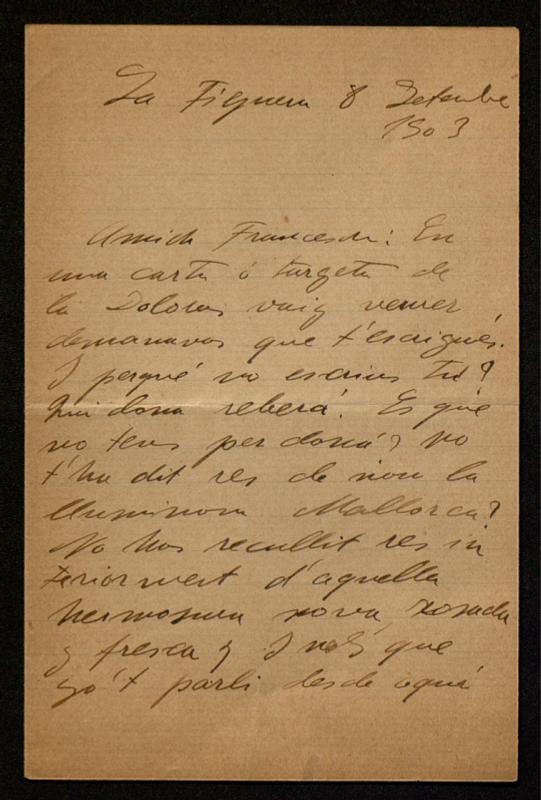 La Figuera 8 Setembre
1903
Amich Francesch: En
una carta ó targeta de
la Dolors vaig veurer
demanavas que t'escrigués.
I perqué no escrius tu?
Qui dona reberá. Es que
no tens per doná? no
t'ha dit res de nou la
lluminosa Mallorca?
No has recullit res in
teriorment d'aquella
hermosura nova rosada
y fresca? I vols que
yo't parli desde aquí